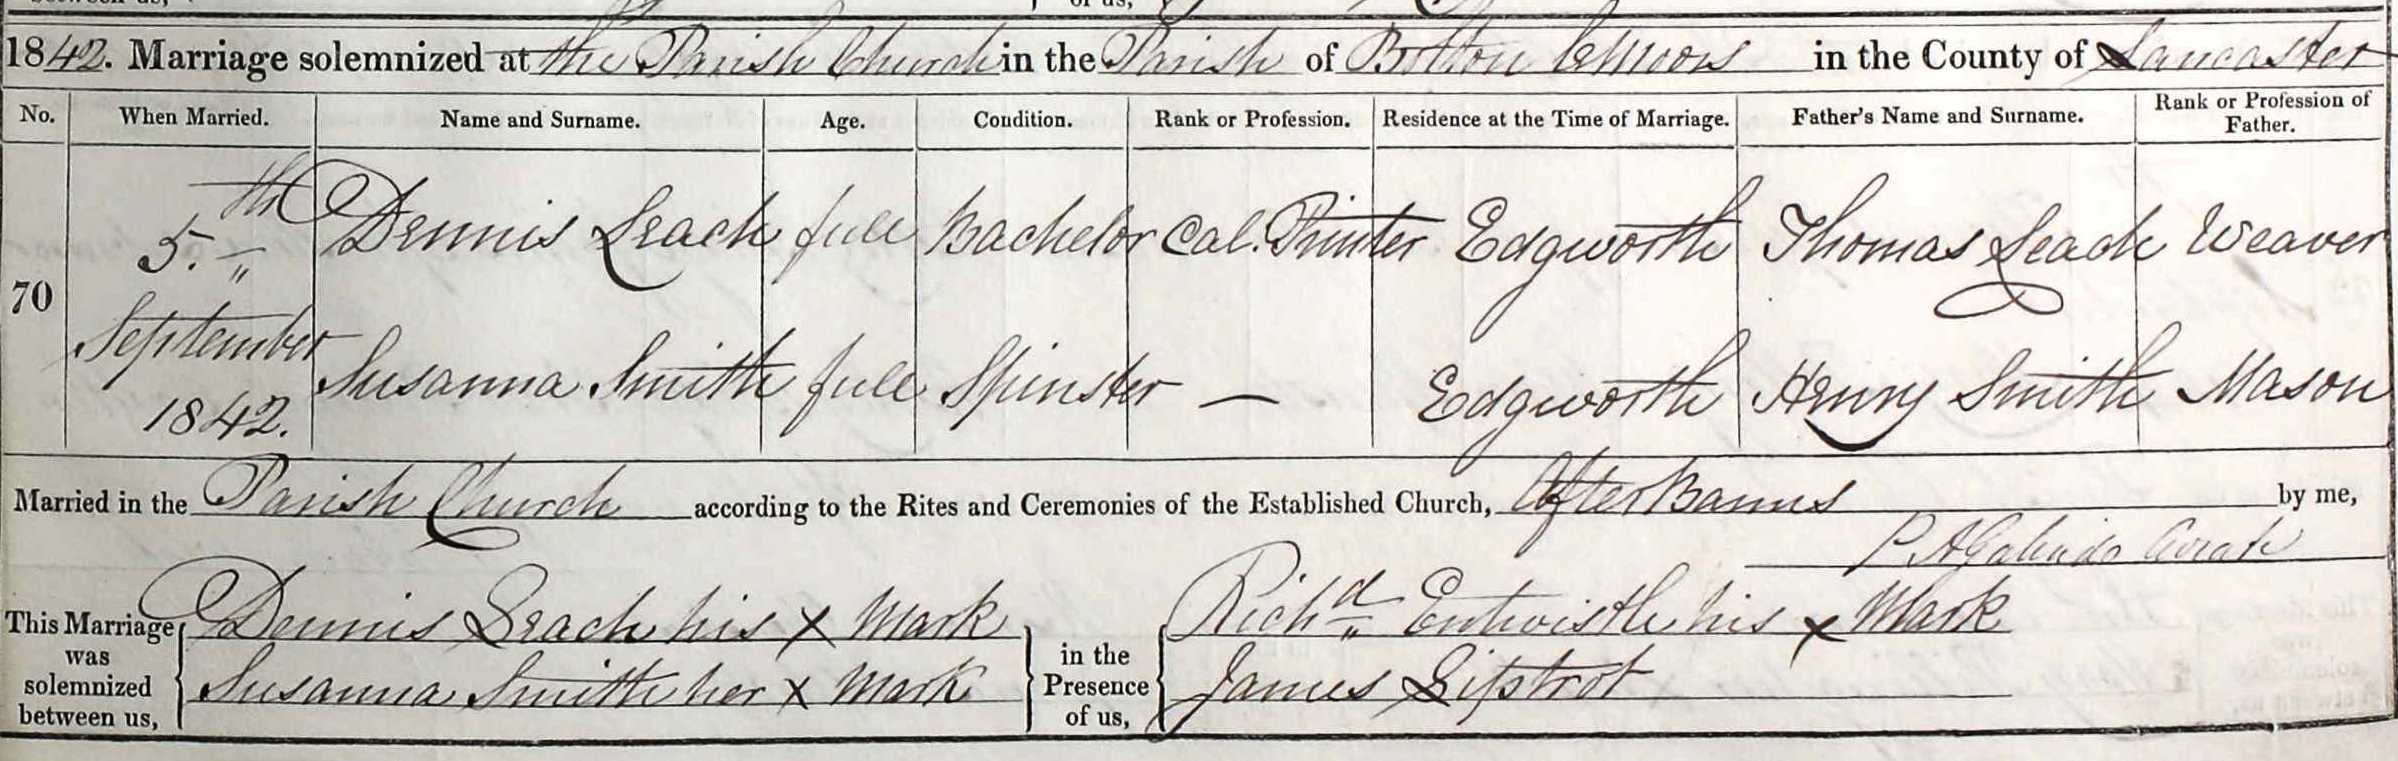 1842. Marriage solemnized at the Parish Church in the Parish of Bolton le Moors in the County of Lancaster
No. When Married. Name and Surname. Age. Condition. Rank or Profession. Residence at the Time of Marriage. Father's Name and Surname. Rank or Profession of Father.
70 5.th September 1842. Dennis Leach full Bachelor Cal. Printer Edgworth Thomas Leach Weaver
Susanna Smith full Spinster — Edgworth Henry Smith Mason
Married in the Parish Church according to the Rites and Ceremonies of the Established Church, After Banns by me,
P A Galindo Curate
This Marriage was solemnized between us, Dennis Leach his x Mark in the Presence of us, Richd Entwistle his x Mark
Susanna Smith her x Mark James Lipstrot